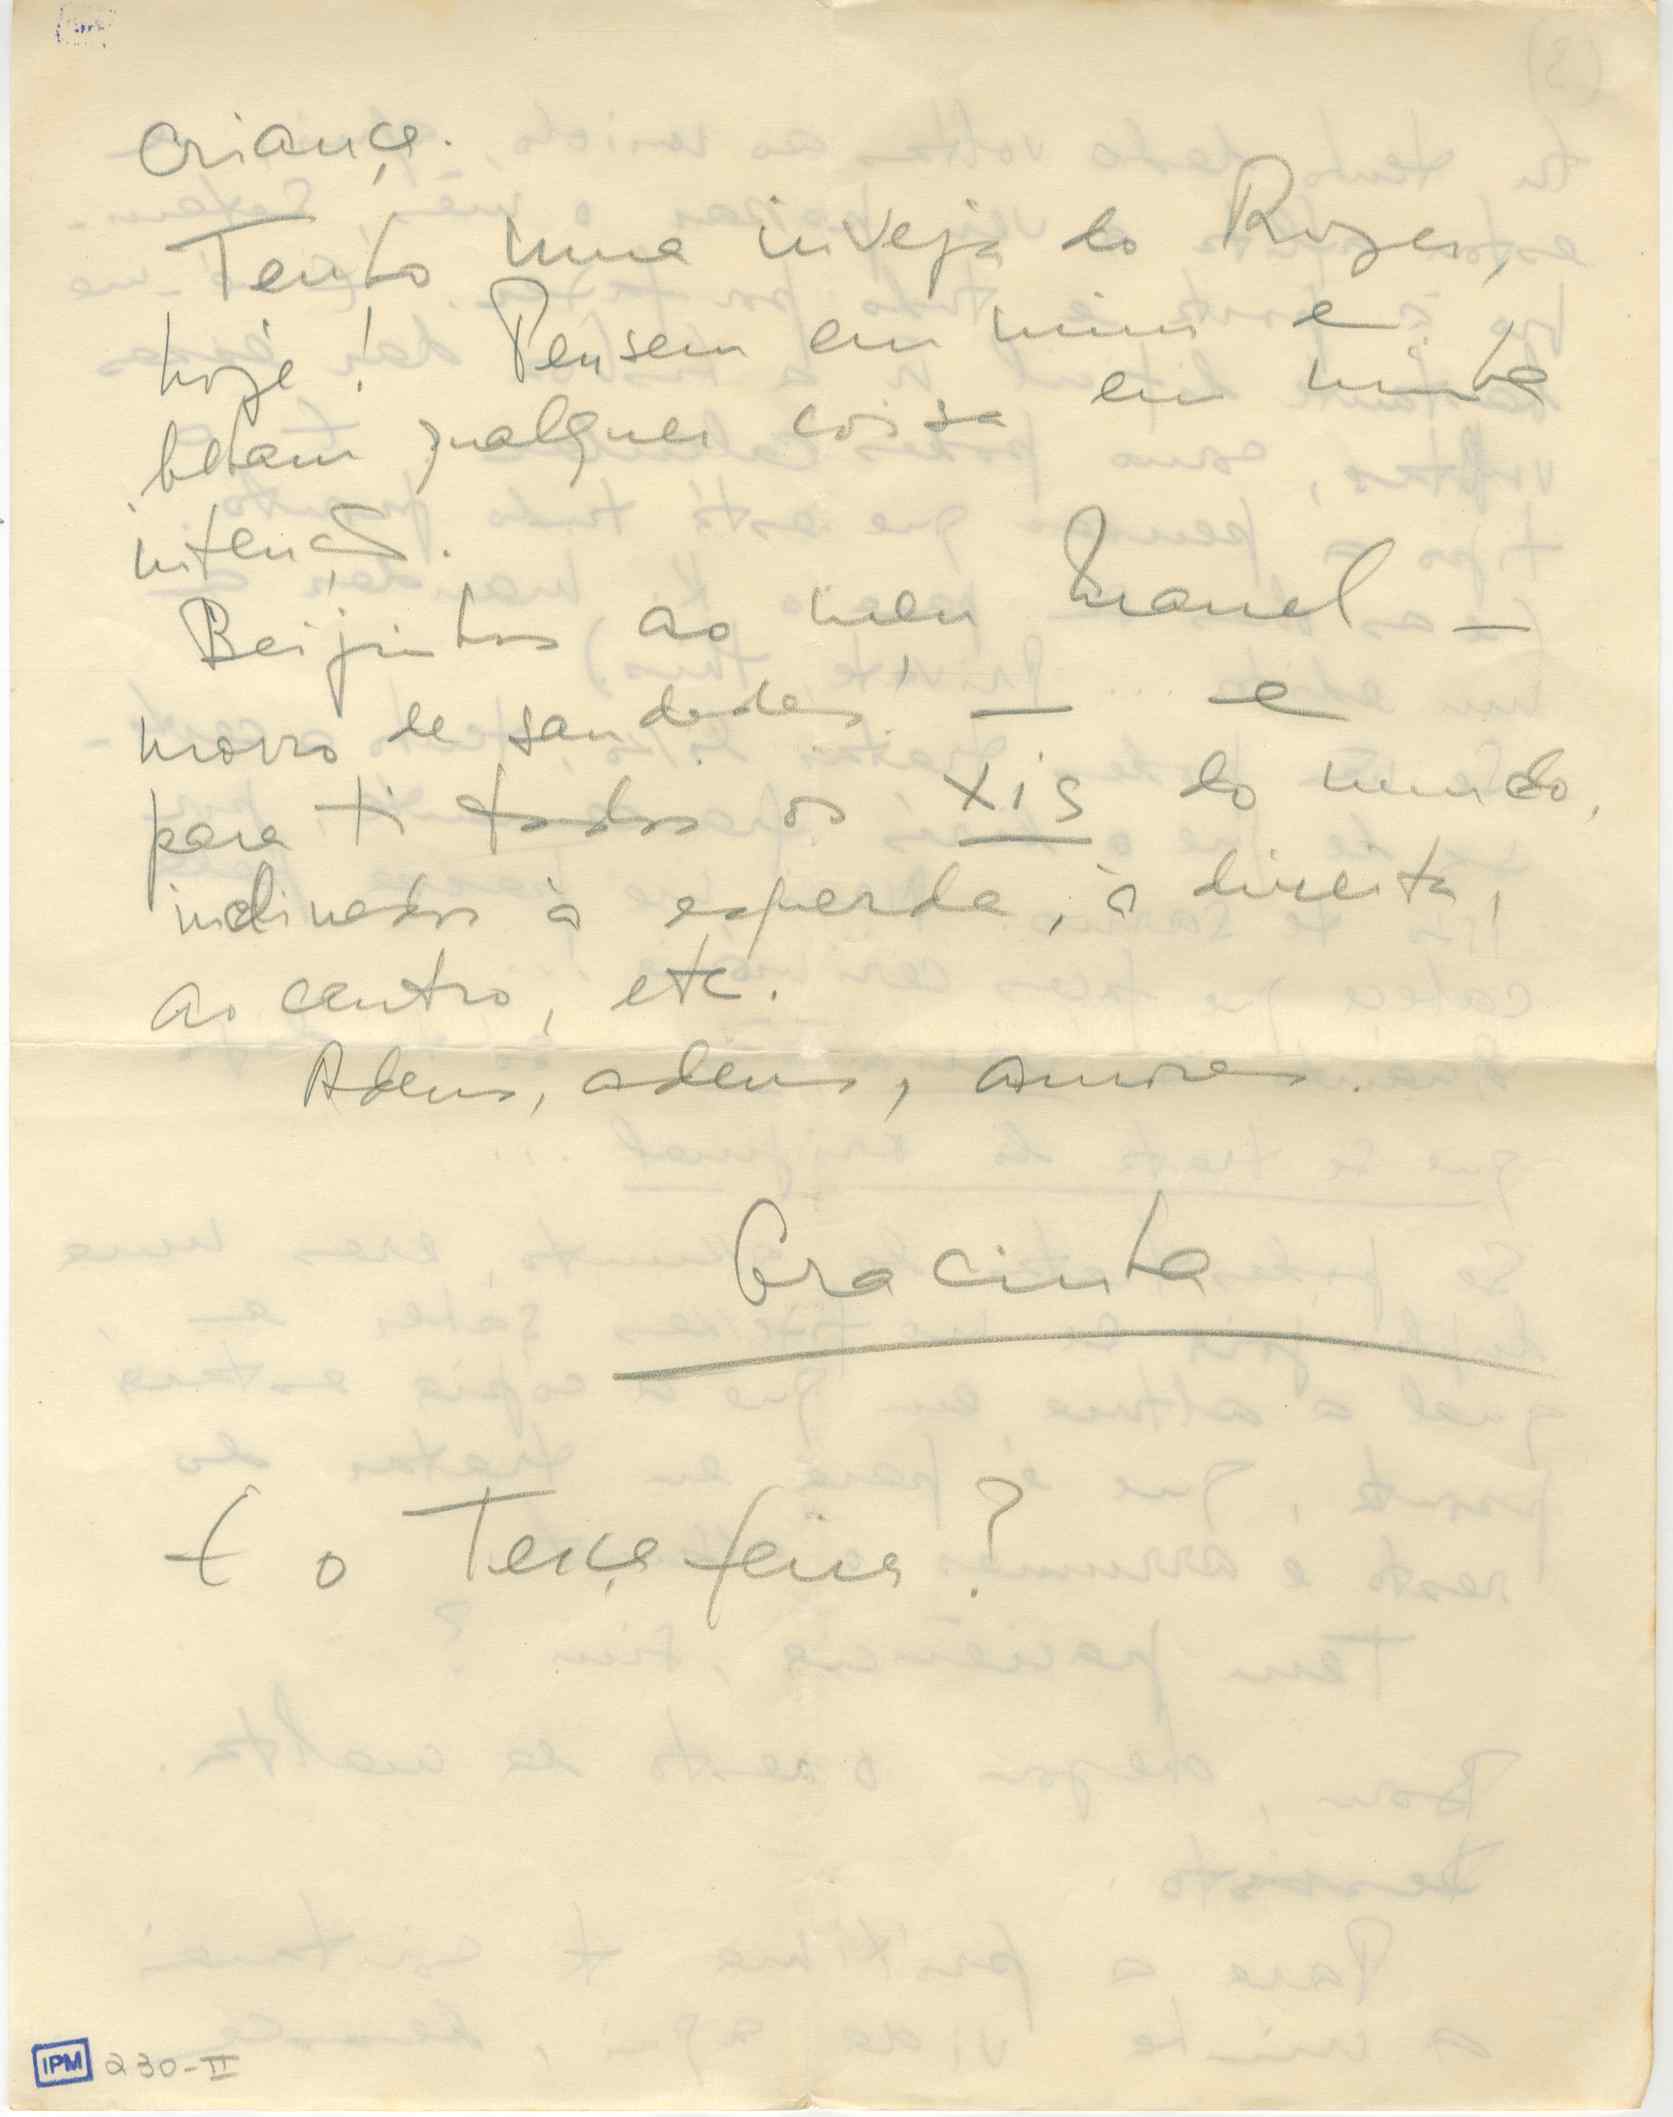 criança.
Tenho uma inveja do Roger,
hoje! Pensem em mim e
bebam qualquer coisa em minha
intenção.
Beijinhos ao meu Manel —
morro de saudades! — e
para ti todos os xis do mundo,
inclinados à esquerda, à direita,
ao centro, etc.
Adeus, adeus, amores.
Gracinha
E o Terça feira?
IPM 230-II